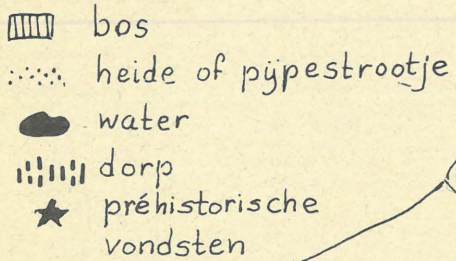 bos
heide of pijpestrootje
water
dorp
préhistorische
vondsten